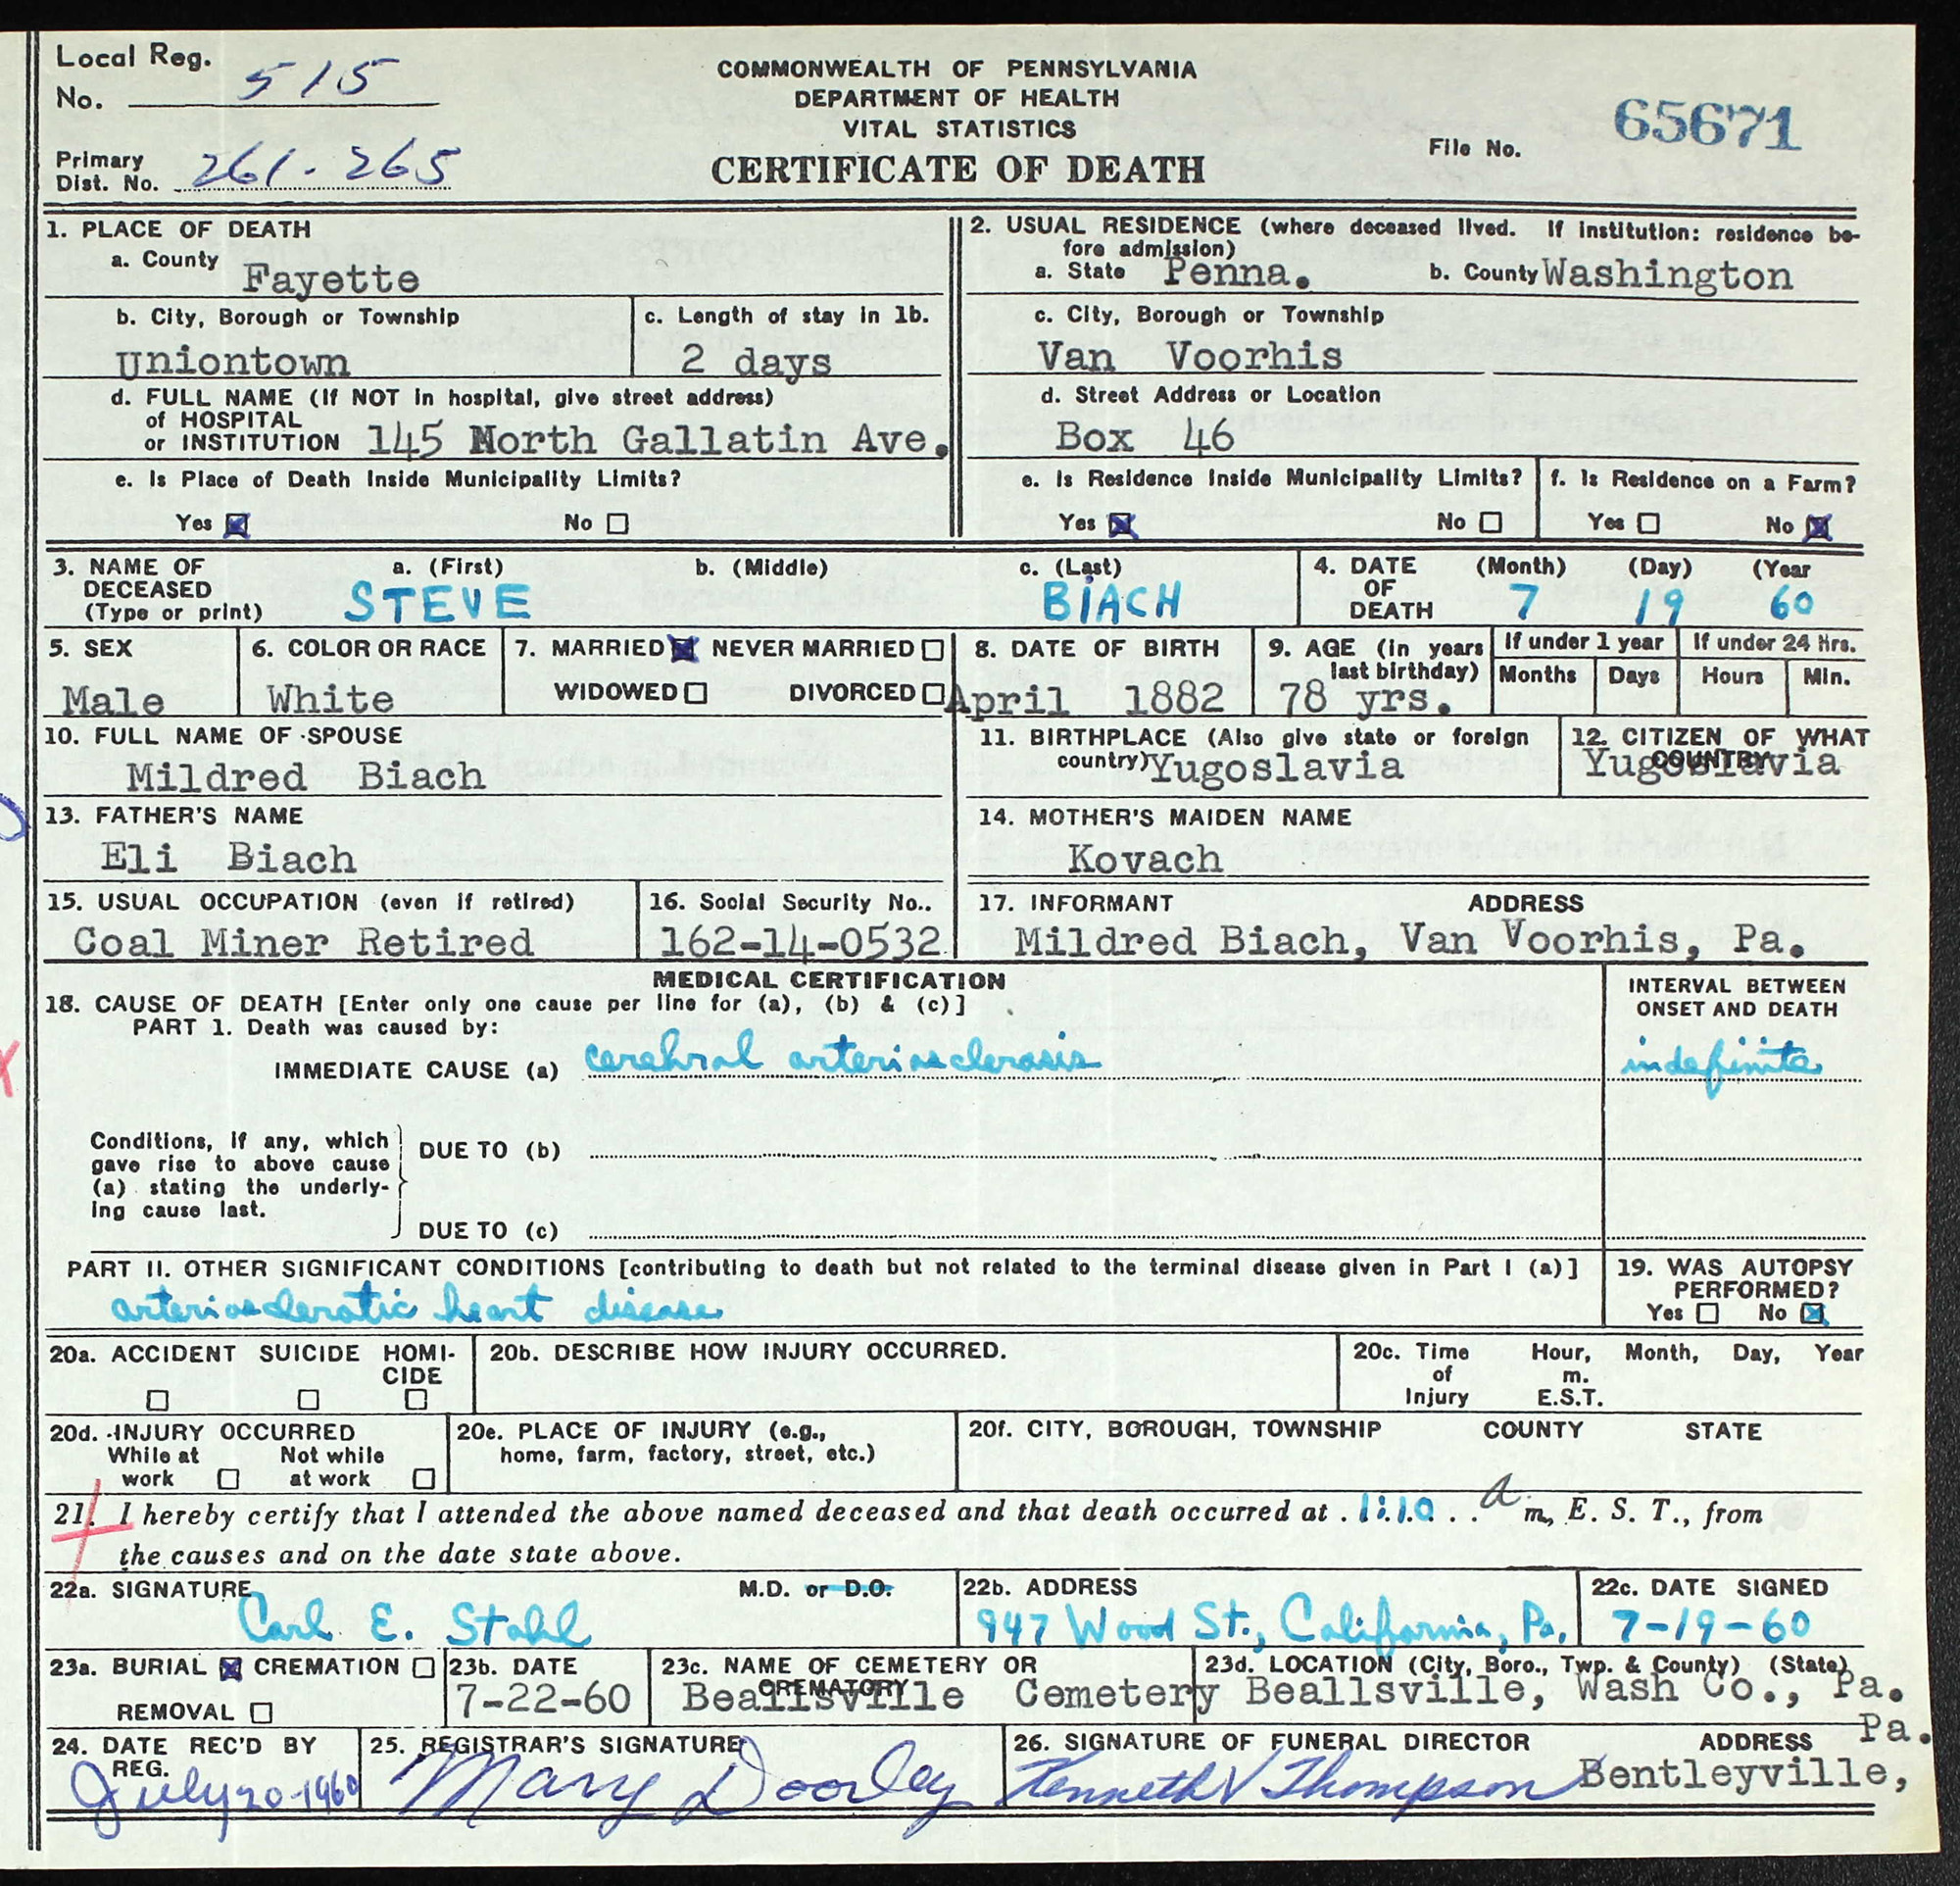 Local Reg.
No. 515
COMMONWEALTH OF PENNSYLVANIA
DEPARTMENT OF HEALTH
VITAL STATISTICS
CERTIFICATE OF DEATH
File No. 65671
Primary
Dist. No. 261-265
1. PLACE OF DEATH
a. County Fayette
b. City, Borough or Township
Uniontown
c. Length of stay in 1b.
2 days
d. FULL NAME (If NOT in hospital, give street address)
of HOSPITAL
or INSTITUTION 145 North Gallatin Ave.
e. Is Place of Death Inside Municipality Limits?
Yes ☒ No ☐
2. USUAL RESIDENCE (where deceased lived. If institution: residence be-
fore admission)
a. State Penna. b. County Washington
c. City, Borough or Township
Van Voorhis
d. Street Address or Location
Box 46
e. Is Residence Inside Municipality Limits?
Yes ☒ No ☐
f. Is Residence on a Farm?
Yes ☐ No ☒
3. NAME OF
DECEASED
(Type or print)
a. (First) b. (Middle) c. (Last)
STEVE BIACH
4. DATE
OF
DEATH
(Month) (Day) (Year
7 19 60
5. SEX
Male
6. COLOR OR RACE
White
7. MARRIED ☒ NEVER MARRIED ☐
WIDOWED ☐ DIVORCED ☐
8. DATE OF BIRTH
April 1882
9. AGE (in years
last birthday)
78 yrs.
If under 1 year
Months Days
If under 24 Hrs.
Hours Min.
10. FULL NAME OF SPOUSE
Mildred Biach
11. BIRTHPLACE (Also give state or foreign
country) Yugoslavia
12. CITIZEN OF WHAT
COUNTRY
Yugoslavia
13. FATHER'S NAME
Eli Biach
14. MOTHER'S MAIDEN NAME
Kovach
15. USUAL OCCUPATION (even if retired)
Coal Miner Retired
16. Social Security No..
162-14-0532
17. INFORMANT ADDRESS
Mildred Biach, Van Voorhis, Pa.
MEDICAL CERTIFICATION
18. CAUSE OF DEATH [Enter only one cause per line for (a), (b) & (c)]
PART 1. Death was caused by:
IMMEDIATE CAUSE (a) cerebral arteriosclerosis
INTERVAL BETWEEN
ONSET AND DEATH
indefinite
Conditions, if any, which
gave rise to above cause
(a) stating the underly-
ing cause last.
DUE TO (b)
DUE TO (c)
PART II. OTHER SIGNIFICANT CONDITIONS [contributing to death but not related to the terminal disease given in Part I (a)]
arteriosclerotic heart disease
19. WAS AUTOPSY
PERFORMED?
Yes ☐ No ☒
20a. ACCIDENT SUICIDE HOMI-
CIDE
☐ ☐ ☐
20b. DESCRIBE HOW INJURY OCCURRED.
20c. Time
of
Injury
Hour, Month, Day, Year
m.
E.S.T.
20d. INJURY OCCURRED
While at Not while
work ☐ at work ☐
20e. PLACE OF INJURY (e.g.,
home, farm, factory, street, etc.)
20f. CITY, BOROUGH, TOWNSHIP COUNTY STATE
21. I hereby certify that I attended the above named deceased and that death occurred at . 1:10 . . a. m, E. S. T., from
the causes and on the date state above.
22a. SIGNATURE M.D. or D.O.
Carl E. Stahl
22b. ADDRESS
947 Wood St., California, Pa.
22c. DATE SIGNED
7-19-60
23a. BURIAL ☒ CREMATION ☐
REMOVAL ☐
23b. DATE
7-22-60
23c. NAME OF CEMETERY OR
CREMATORY
Beallsville Cemetery
23d. LOCATION (City, Boro., Twp. & County) (State)
Beallsville, Wash Co., Pa.
24. DATE REC'D BY
REG.
July 20-1960
25. REGISTRAR'S SIGNATURE
Mary Doorley
26. SIGNATURE OF FUNERAL DIRECTOR ADDRESS
Kenneth V Thompson Bentleyville,
Pa.